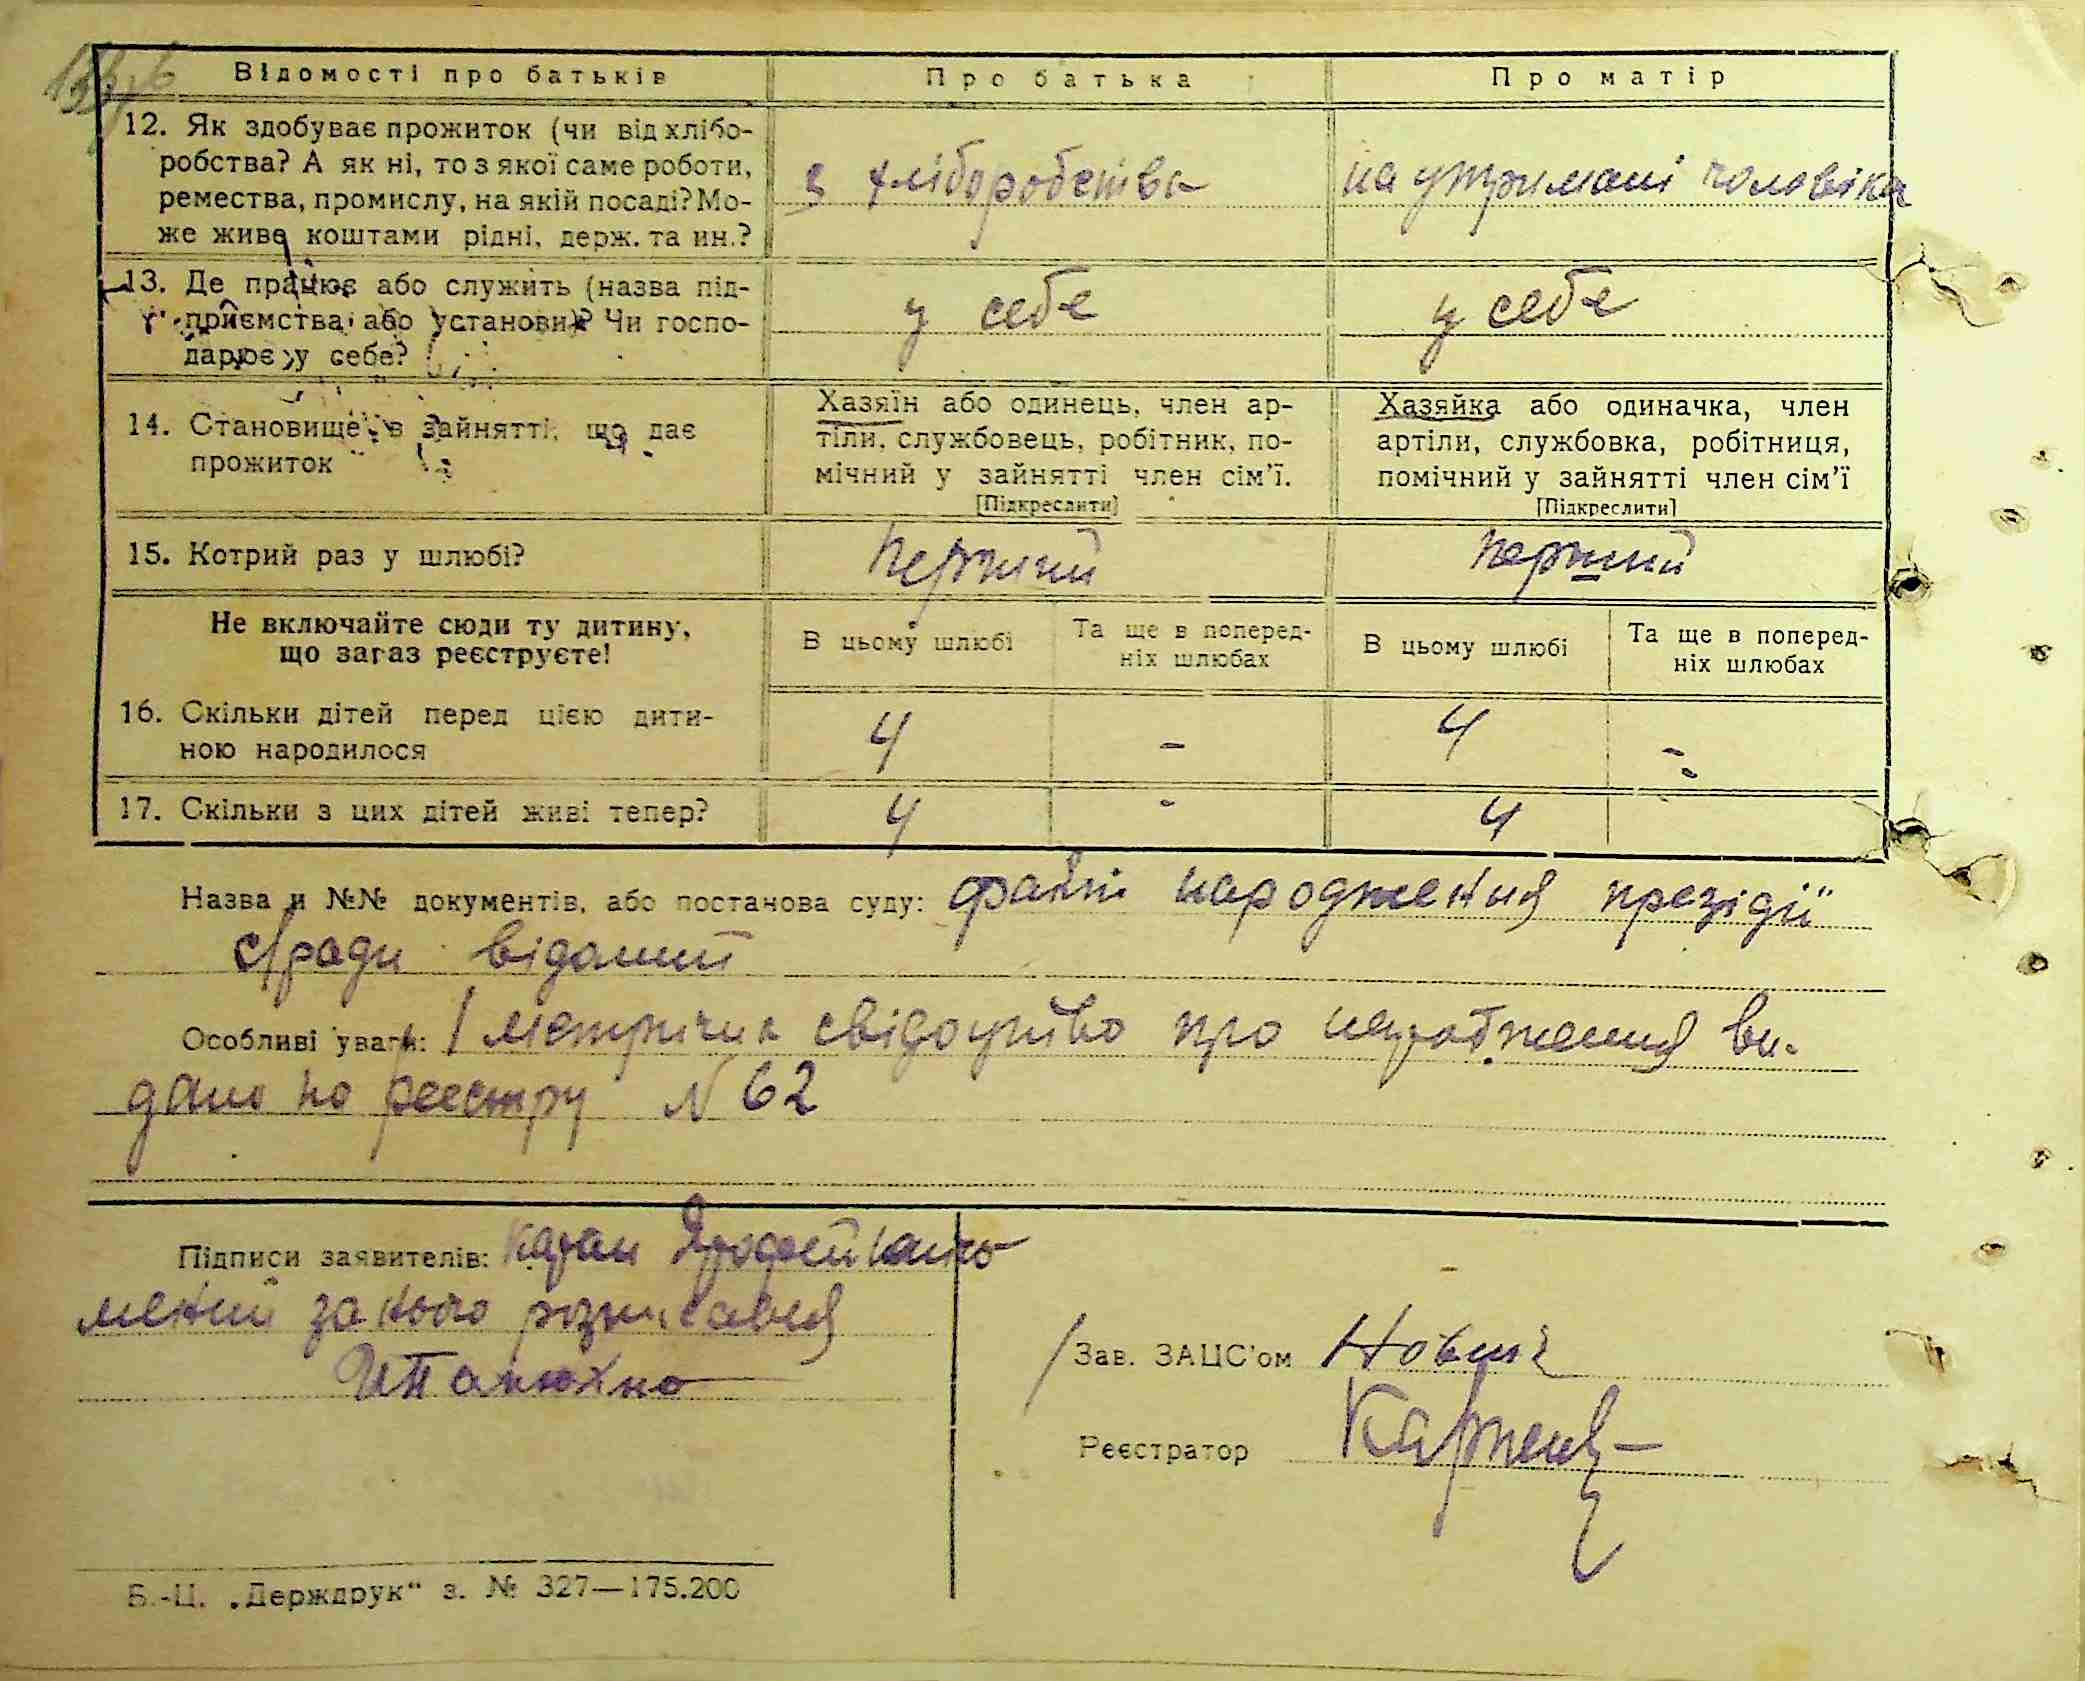 Відомості про батьків
Про батька
Про матір
12. Як здобуває прожиток (чи від хлібо-
робства? А як ні, то з якої саме роботи,
ремества, промислу, на якій посаді? Мо-
же живе коштами рідні, держ. та ин.?
з хліборобства
на утримані чоловіка
13. Де працює або служить (назва під-
приємства або установи)? Чи госпо-
дарює у себе?
у себе
у себе
14. Становище в зайнятті, що дає
прожиток
Хазяїн або одинець, член ар-
тіли, службовець, робітник, по-
мічний у зайнятті член сім’ї.
[Підкреслити]
Хазяйка або одиначка, член
артіли, службовка, робітниця,
помічний у зайнятті член сім’ї
[Підкреслити]
15. Котрий раз у шлюбі?
перший
перший
Не включайте сюди ту дитину,
що зараз реєструєте!
В цьому шлюбі
Та ще в поперед-
ніх шлюбах
В цьому шлюбі
Та ще в поперед-
ніх шлюбах
16. Скільки дітей перед цією дити-
ною народилося
4 - 4 -
17. Скільки з цих дітей живі тепер?
4 - 4
Назва и №№ документів, або постанова суду: факт народження президії
с/ради відомий
Особливі уваги: свідоцтво про народження ви-
дано по реєстру N 62
Підписи заявителів:
за кого розписався
Зав. ЗАЦС’ом
Реєстратор
Б.-Ц. „Держдрук“ з. № 327—175.200